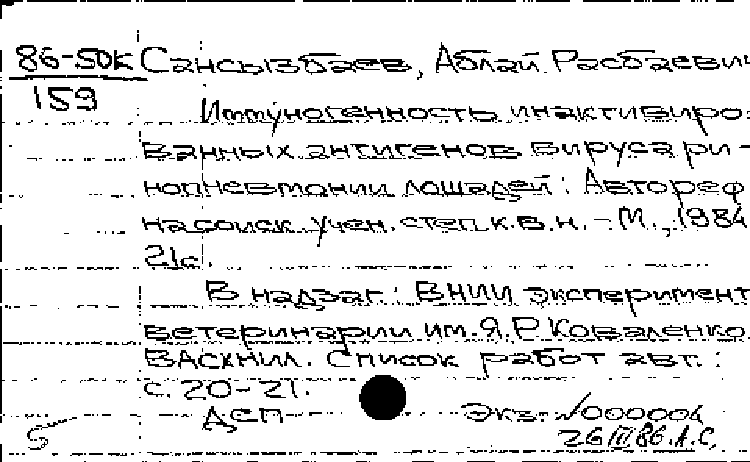 86-50к Сансызбаев, Аблай Расбаевич
159
Иммуногенность инактивиро-
ванных антигенов вируса ри-
нопневмонии лошадей: Автореф
на соиск. учен. степ. к.в.н. - М., 1984
21с.
В надзаг.: ВНИИ эксперимент
ветеринарии им. Я.Р Коваленко.
ВАСХНИЛ. Список работ авт.:
с. 20-21.
ДСП Экз. №000004
5 26 III 86. Л.С.